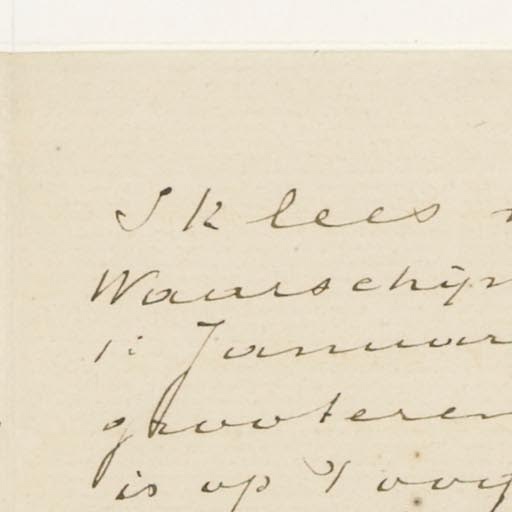 Ik lees
Waarschijn
1: Januar
grooteren
is op 't oog